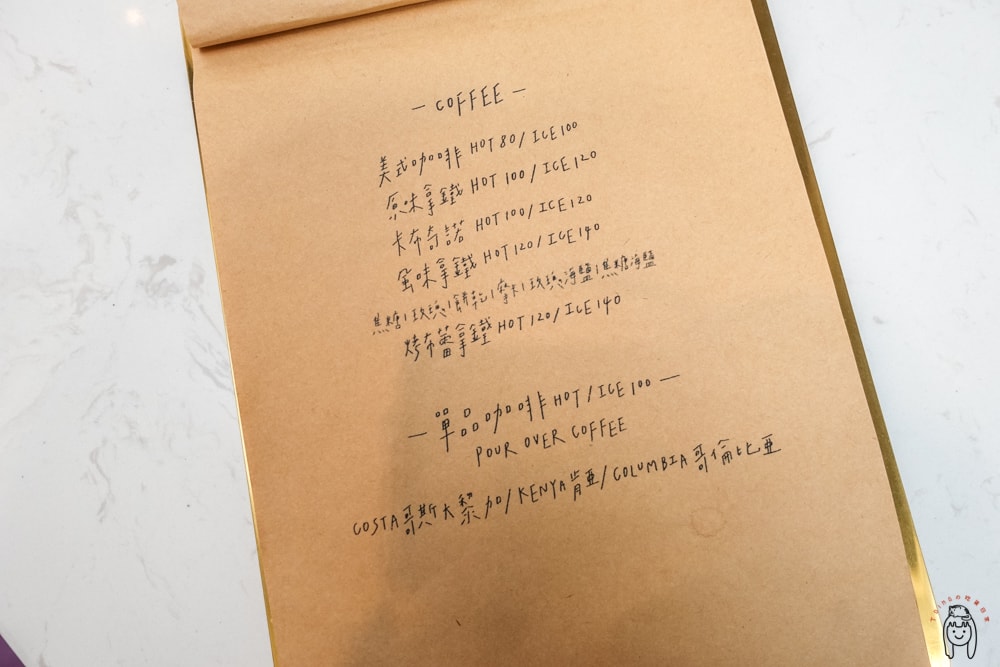 — COFFEE —
美式咖啡 HOT 80/ICE 100
原味拿鐵 HOT 100/ICE 120
卡布奇諾 HOT 100/ICE 120
風味拿鐵 HOT 120/ICE 140
焦糖/玫瑰/餅乾/摩卡/玫瑰海鹽/焦糖海鹽
烤布蕾拿鐵 HOT 120/ICE 140
— 單品咖啡 HOT/ICE 100 —
POUR OVER COFFEE
COSTA哥斯大黎加/KENYA肯亞/COLUMBIA哥倫比亞